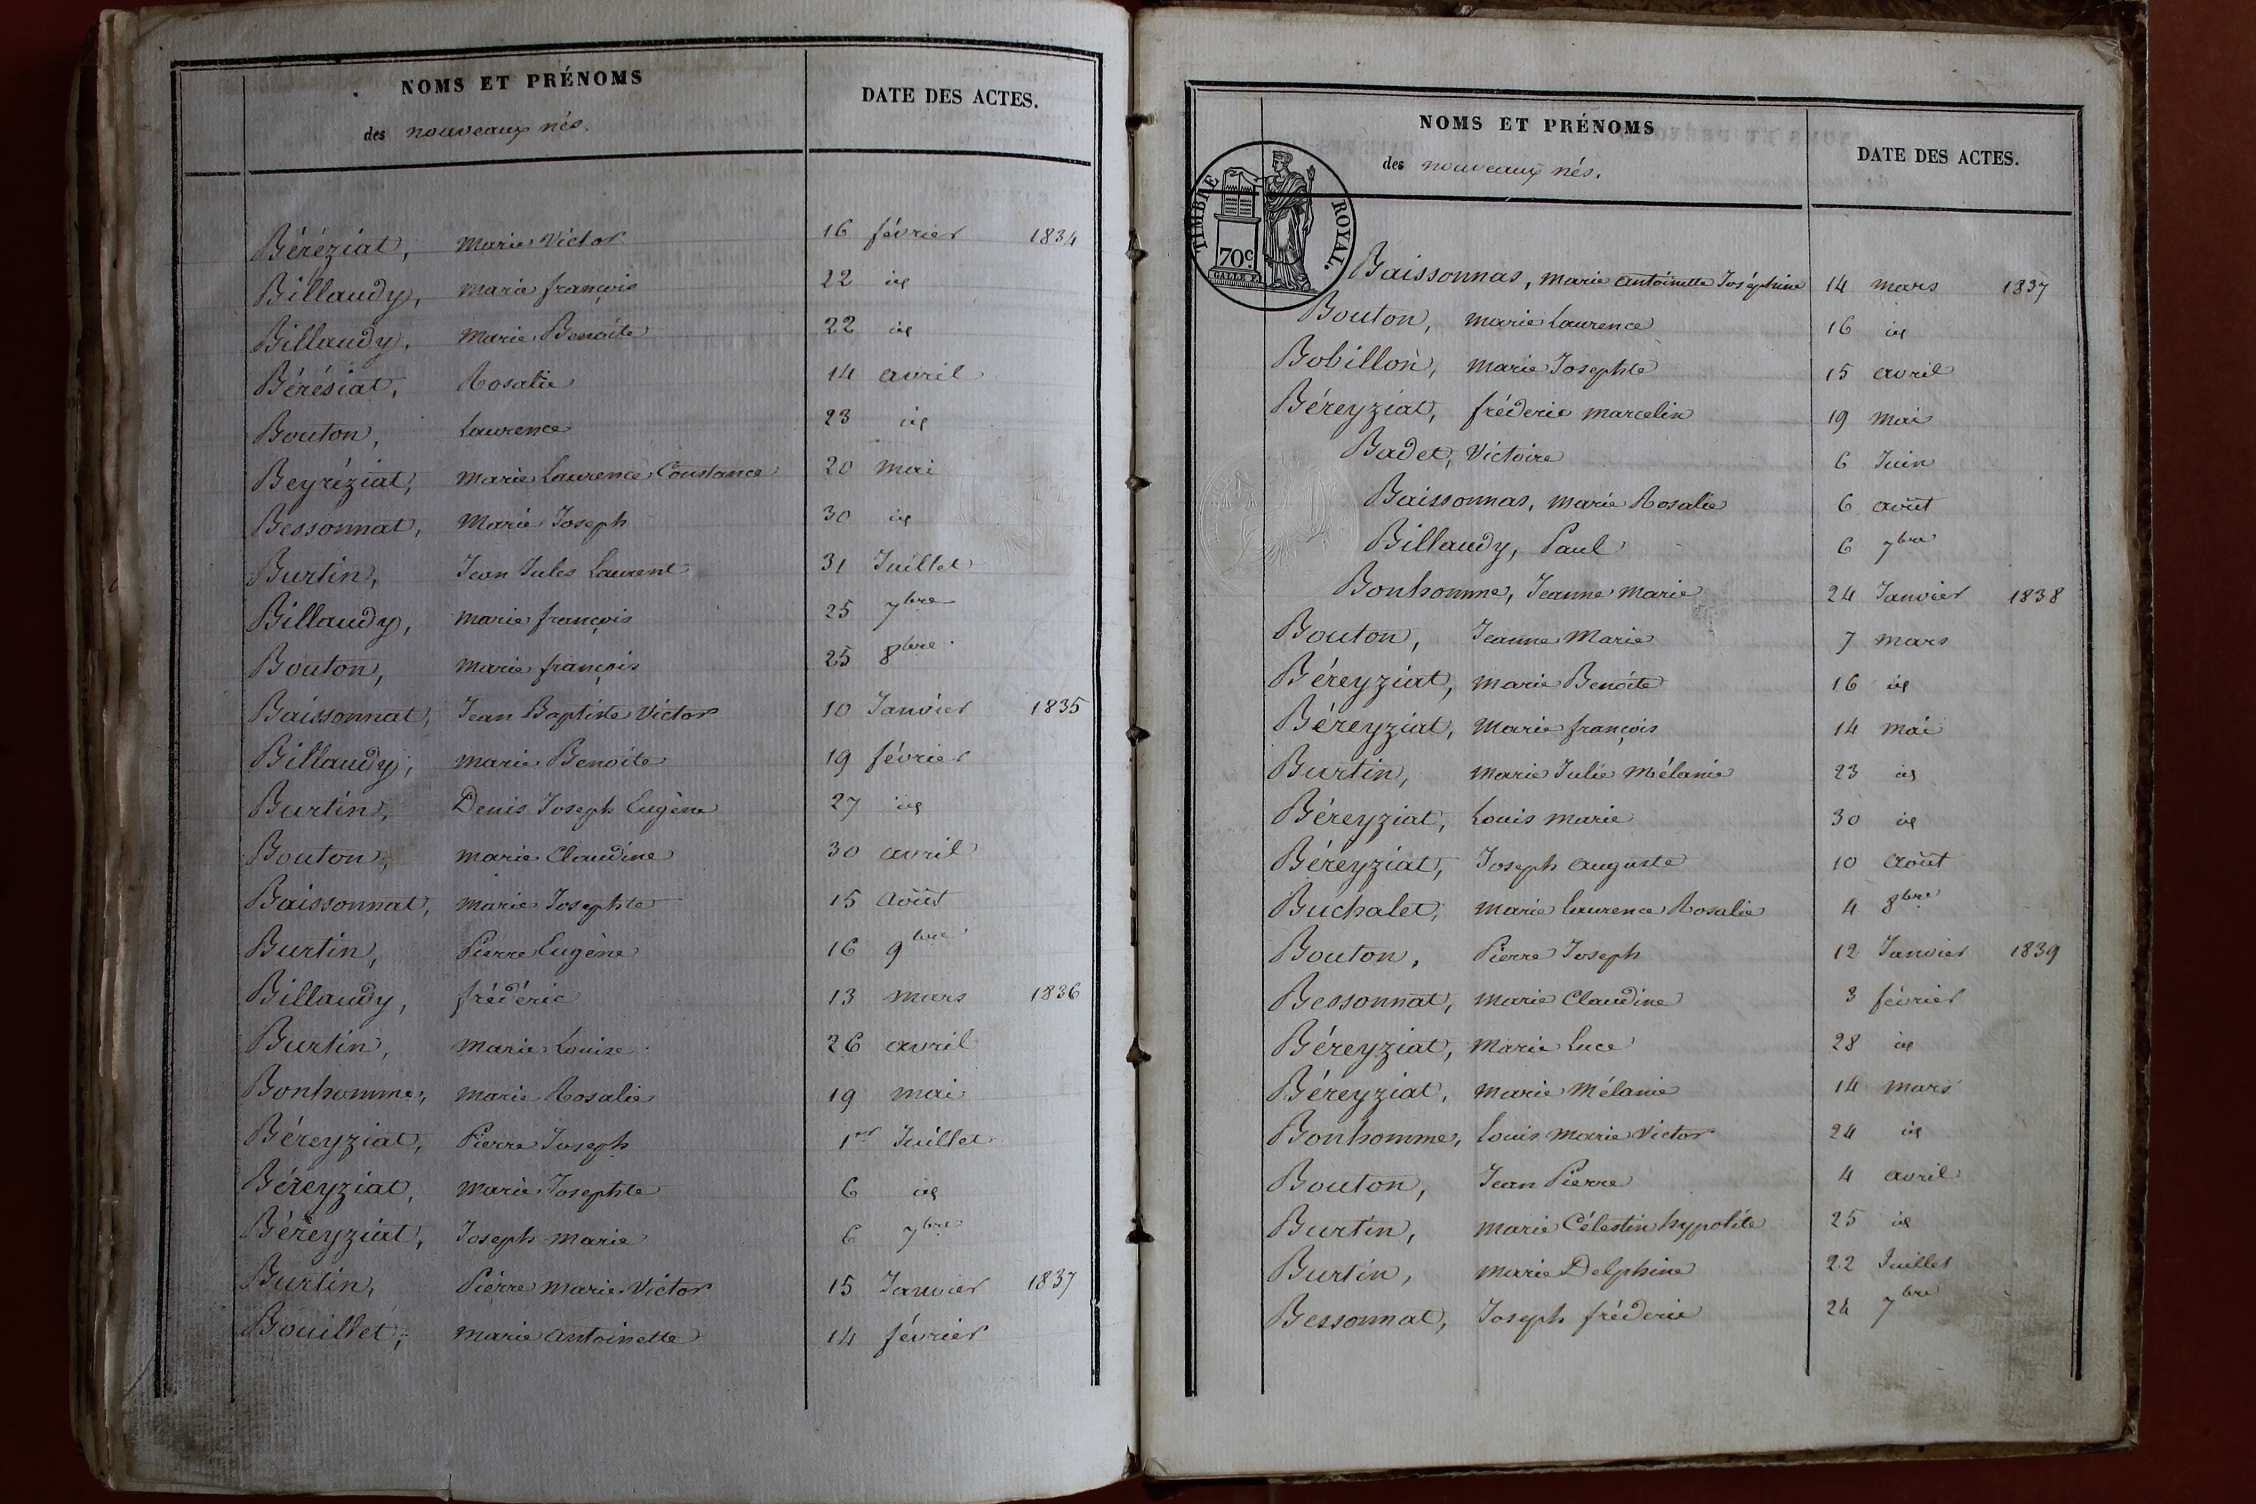 NOMS ET PRÉNOMS
des nouveaux nés.
DATE DES ACTES.
Béréziat, marie Victor 16 février 1834
Billaudy, marie françois 22 id
Billaudy, Marie Benoite 22 id
Bérésiat, Rosalie 14 avril
Bouton, Laurence 23 id
Beyréziat, marie Laurence Constance 20 mai
Bessonnat, Marie Joseph 30 id
Burtin, Jean Jules Laurent 31 Juillet
Billaudy, marie françois 25 7bre
Bouton, marie françois 25 8bre
Baissonnat, Jean Baptiste Victor 10 Janvier 1835
Billaudy, marie Benoite 19 février
Burtin, Denis Joseph Eugène 27 id
Bouton, marie Claudine 30 avril
Baissonnat, marie Josephte 15 Août
Burtin, Pierre Eugène 16 9bre
Billaudy, frédéric 13 mars 1836
Burtin, marie Louise 26 avril
Bonhomme, marie Rosalie 19 mai
Béreyziat, Pierre Joseph 1er Juillet
Béreyziat, marie Josephte 6 id
Béreyziat, Joseph marie 6 7bre
Burtin, Pierre marie Victor 15 Janvier 1837
Bouillet, marie antoinette 14 février
NOMS ET PRÉNOMS
des nouveaux nés.
DATE DES ACTES.
TIMBRE ROYAL.
70c.
GALLE F.
Baissonnas, marie antoinette Joséphine 14 mars 1837
Bouton, marie Laurence 16 id
Bobillon, marie Josephte 15 avril
Béreyziat, fréderic marcelin 19 mai
Badet, Victoire 6 Juin
Baissonnas, marie Rosalie 6 août
Billaudy, Paul 6 7bre
Bonhomme, Jeanne marie 24 Janvier 1838
Bouton, Jeanne Marie 7 mars
Béreyziat, marie Benoite 16 id
Béreyziat, Marie françois 14 mai
Burtin, marie Julie Mélanie 23 id
Béreyziat, Louis marie 30 id
Béreyziat, Joseph auguste 10 août
Buchalet, marie laurence Rosalie 4 8bre
Bouton, Pierre Joseph 12 Janvier 1839
Bessonnat, marie Claudine 3 février
Béreyziat, Marie Luce 28 id
Béreyziat, marie Mélanie 14 mars
Bonhomme, Louis marie Victor 24 id
Bouton, Jean Pierre 4 avril
Burtin, marie Célestin hypolite 25 id
Burtin, marie Delphine 22 Juillet
Bessonnat, Joseph fréderic 24 7bre